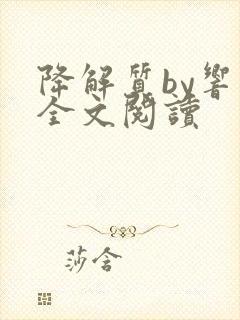 降解質by響
全文閱讀
莎含